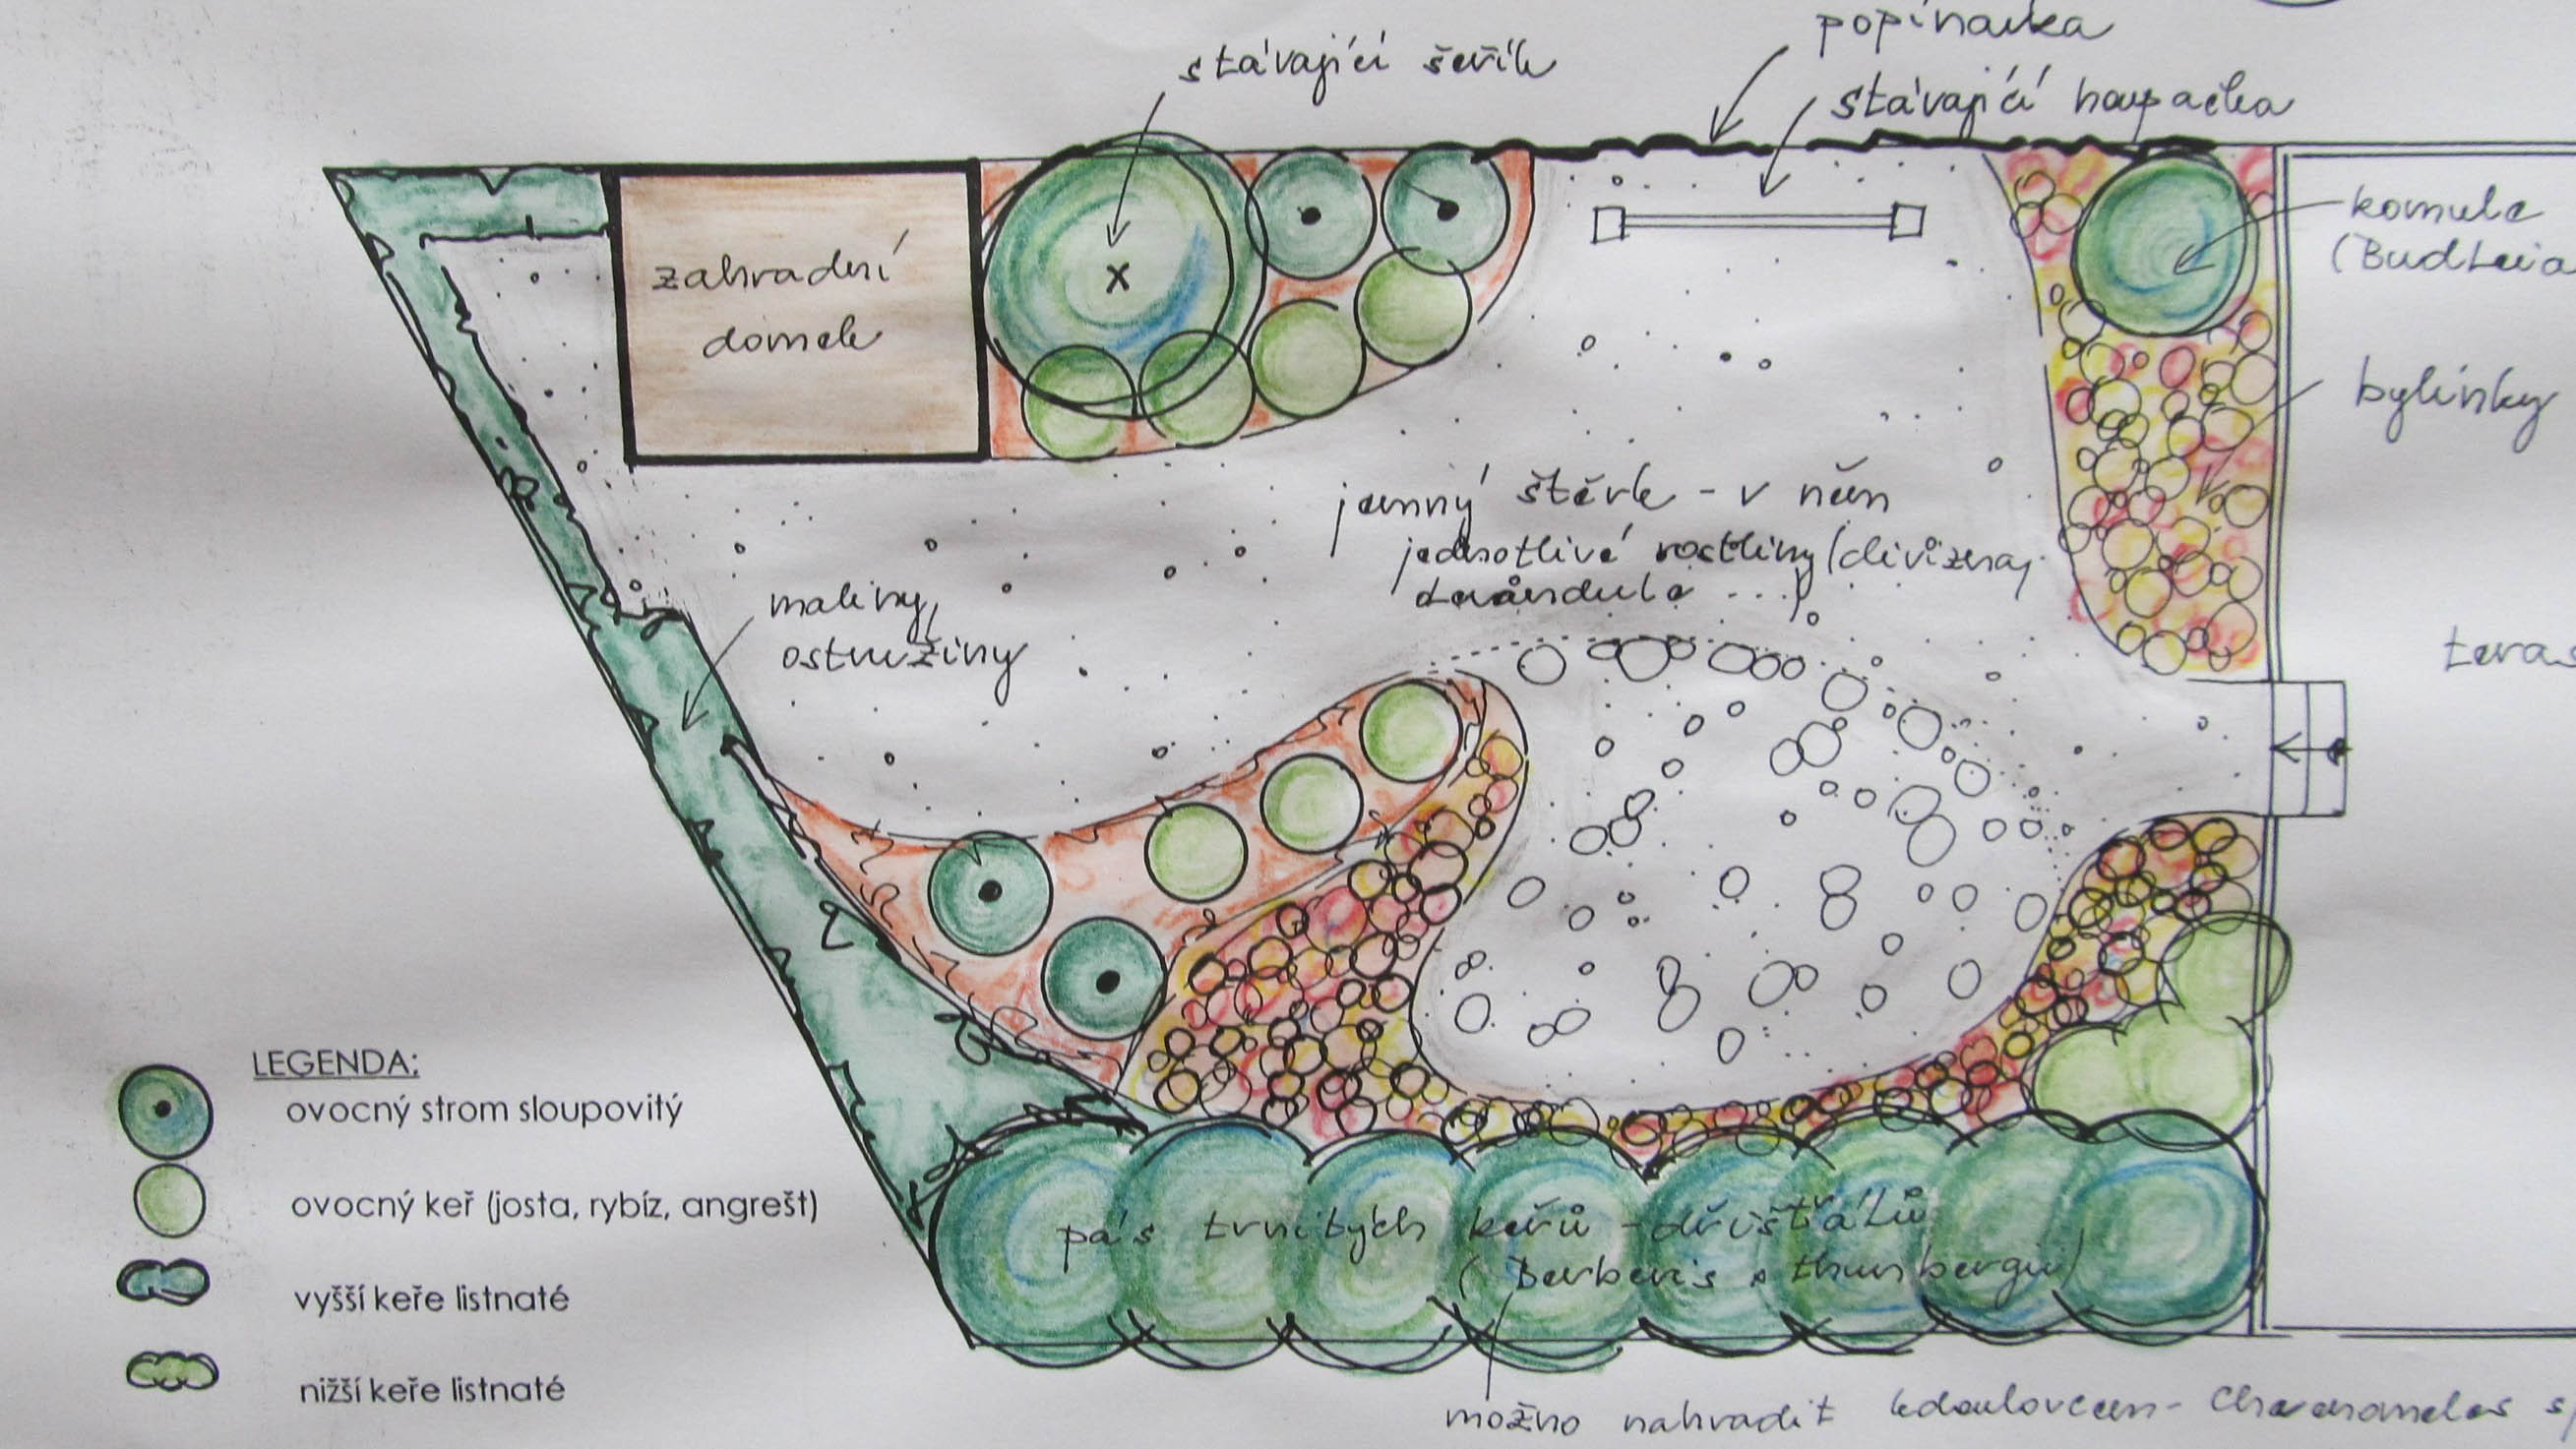 popínavka
stávající šeřík
stávající houpačka
komule
(Budleia
zahradní
domek
bylinky
jemný štěrk - v něm
jednotlivé rostliny (divizna,
levandule ...)
maliny,
ostružiny
teras
LEGENDA:
ovocný strom sloupovitý
ovocný keř (josta, rybíz, angrešt)
vyšší keře listnaté
nižší keře listnaté
pás trnitých keřů - dřišťálů
(Berberis thunbergii)
možno nahradit kdoulovcem -